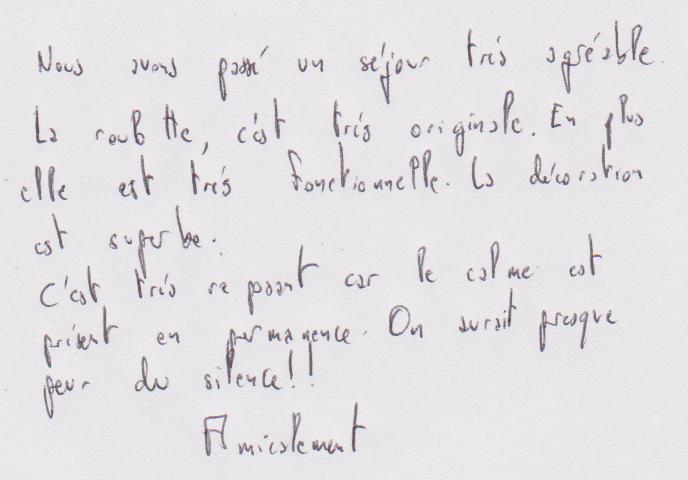 Nous avons passé un séjour très agréable.
La roulotte, c'est très originale. En plus
elle est très fonctionnelle. La décoration
est superbe.
C'est très reposant car le calme est
présent en permanence. On aurait presque
peur du silence!!
Amicalement